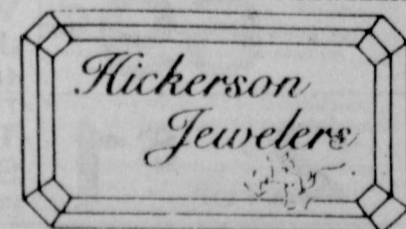 Hickerson
Jewelers